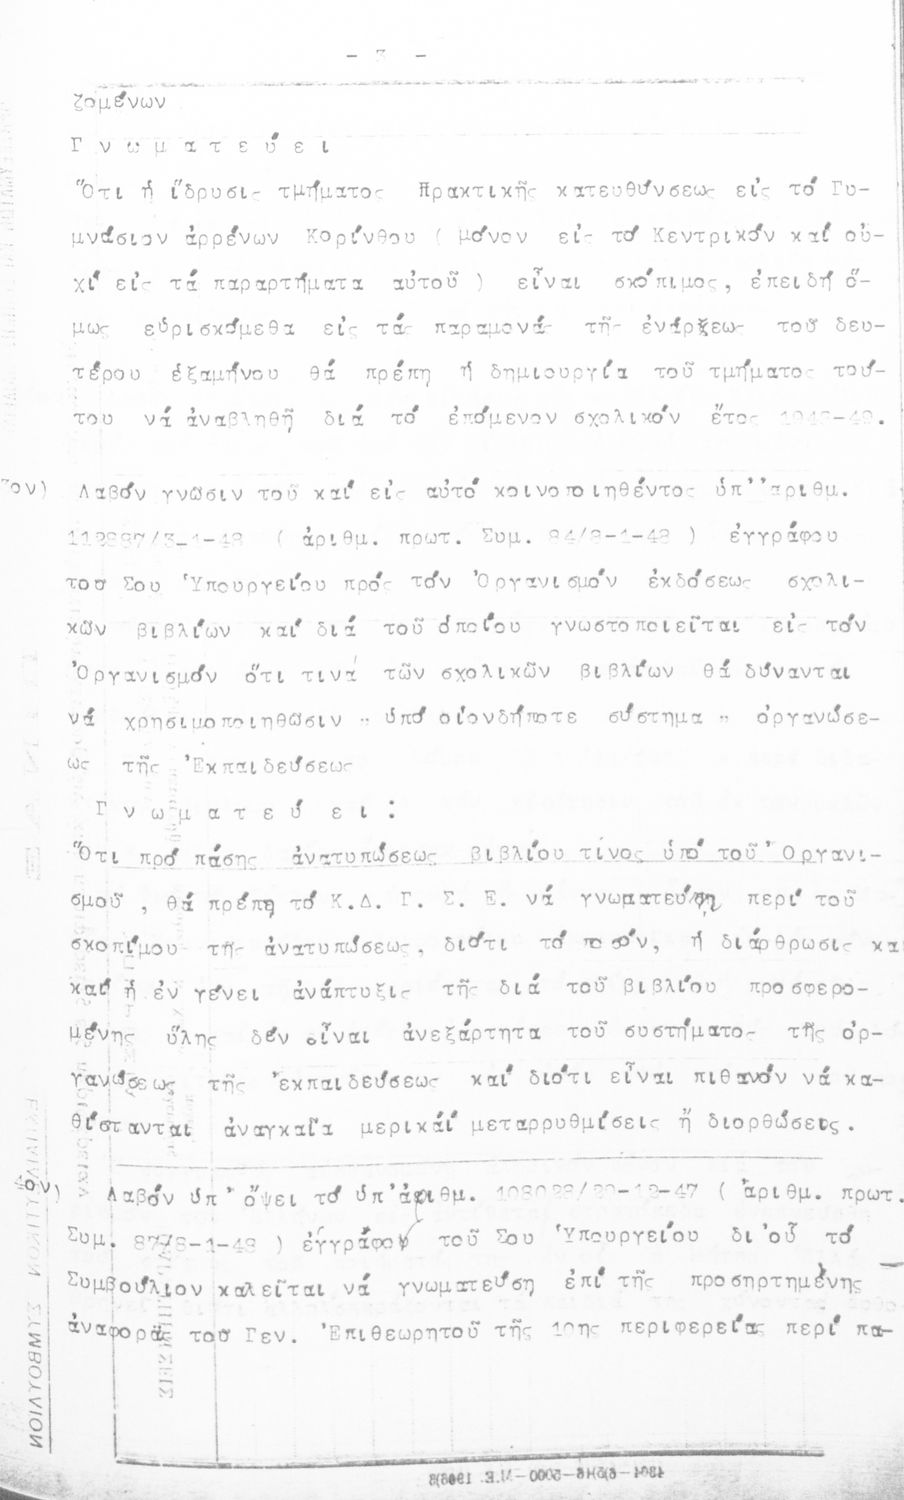 - 3 -
ζομένων
Γ ν ω μ α τ ε ύ ε ι
Ὅτι ἡ ἵδρυσις τμήματος Πρακτικῆς κατευθύνσεως εἰς τό Γυ-
μνάσιον ἀρρένων Κορίνθου ( μόνον εἰς τό Κεντρικόν καί οὐ-
χί εἰς τά παραρτήματα αὐτοῦ ) εἶναι σκόπιμος, ἐπειδή ὅ-
μως εὑρισκόμεθα εἰς τάς παραμονάς τῆς ἐνάρξεως τοῦ δευ-
τέρου ἑξαμήνου θά πρέπη ἡ δημιουργία τοῦ τμήματος τού-
του νά ἀναβληθῆ διά τό ἑπόμενον σχολικόν ἔτος 1948-49.
3ον) Λαβόν γνῶσιν τοῦ καί εἰς αὐτό κοινοποιηθέντος ὑπ''αριθμ.
112987/3-1-48 ( ἀριθμ. πρωτ. Συμ. 84/8-1-48 ) ἐγγράφου
τοῦ Σου Ὑπουργείου πρός τόν Ὀργανισμόν ἐκδόσεως σχολι-
κῶν βιβλίων καί διά τοῦ ὁποίου γνωστοποιεῖται εἰς τόν
Ὀργανισμόν ὅτι τινά τῶν σχολικῶν βιβλίων θά δύνανται
νά χρησιμοποιηθῶσιν " ὑπό οἱονδήποτε σύστημα " ὀργανώσε-
ως τῆς Ἐκπαιδεύσεως
Γ ν ω μ α τ ε ύ ε ι :
Ὅτι πρό πάσης ἀνατυπώσεως βιβλίου τίνος ὑπό τοῦ Ὀργανι-
σμοῦ , θά πρέπη τό Κ.Δ. Γ. Σ. Ε. νά γνωματεύση περί τοῦ
σκοπίμου τῆς ἀνατυπώσεως, διότι τό ποσόν, ἡ διάρθρωσις και
καί ἡ ἐν γένει ἀνάπτυξις τῆς διά τοῦ βιβλίου προσφερο-
μένης ὕλης δέν εἶναι ἀνεξάρτητα τοῦ συστήματος τῆς ὀρ-
γανώσεως τῆς Ἐκπαιδεύσεως καί διότι εἶναι πιθανόν νά κα-
θίστανται ἀναγκαῖα μερικάί μεταρρυθμίσεις ἤ διορθώσεις.
4ον) Λαβόν ὑπ' ὄψει τό ὑπ'ἀριθμ. 108028/29-12-47 ( ἀριθμ. πρωτ.
Συμ. 87/8-1-48 ) ἐγγράφον τοῦ Σου Ὑπουργείου δι'οὗ τό
Συμβούλιον καλεῖται νά γνωματεύση ἐπί τῆς προσηρτημένης
ἀναφορᾶς τοῦ Γεν. Ἐπιθεωρητοῦ τῆς 10ης περιφερείας περί πα-